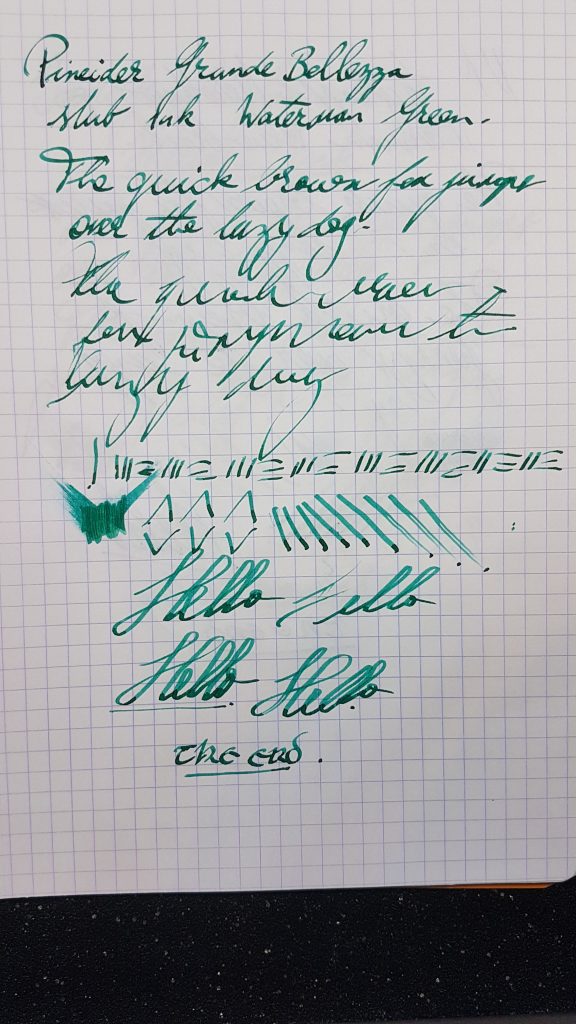 Pineider Grande Bellezza
stub Ink Waterman Green.
The quick brown fox jumps
over the lazy dog.
The quick
fox jumps over the
lazy dog
Hello Hello
Hello Hello
The End.